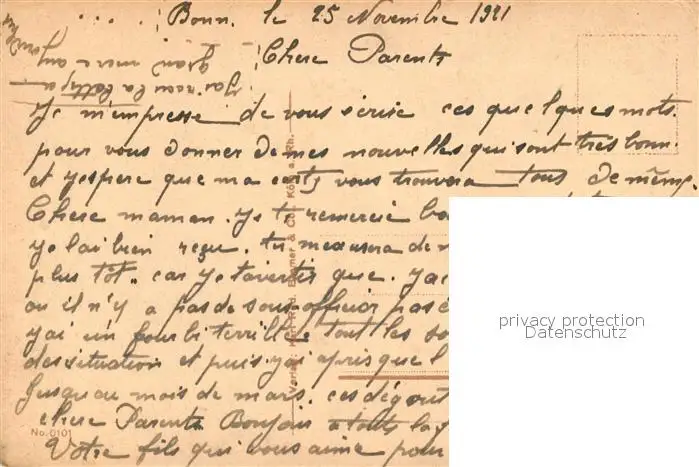 Bonn. le 25 Novembre 1921
Chere Parents
j'ai recu la
grand mere
Je m'empresse de vous ecrise ces quelques mots
pour vous donner de mes nouvelles qui sont trés bonn.
et j'espere que ma carte vous trouvera tous de même.
Chere maman. Je te remercie
Je l'ai bien reçu. tu m'excusera de
plus tôt.. car je t'avertis que. j'ai
ou il n'y a pas de sous officier pas
j'ai un fourbi terrible tout les
des situation et puis j'ai apris que l
Jusqu'au mois de mars. ces dégout
chere Parents Bonjour a touts la
Votre fils qui vous aime pour
No. 0101
privacy protection
Datenschutz